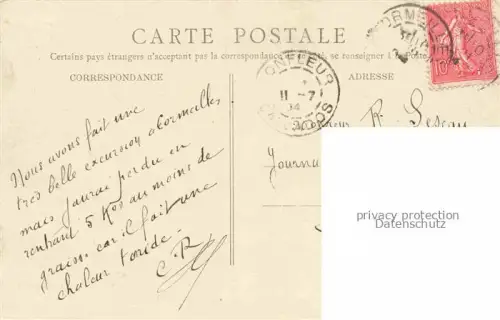 CARTE POSTALE
Certains pays étrangers n'acceptant pas la correspondance se renseigner à la Poste
CORRESPONDANCE
ADRESSE
HONFLEUR
11-7
04
CALVADOS
10
Nous avons fait une
très belle excursion à Cormeilles
mais j'aurai perdu en
rentrant 5 Kos au moins de
graisse car il fait une
chaleur torride.
C.R
R. Leseau
Journ
privacy protection
Datenschutz